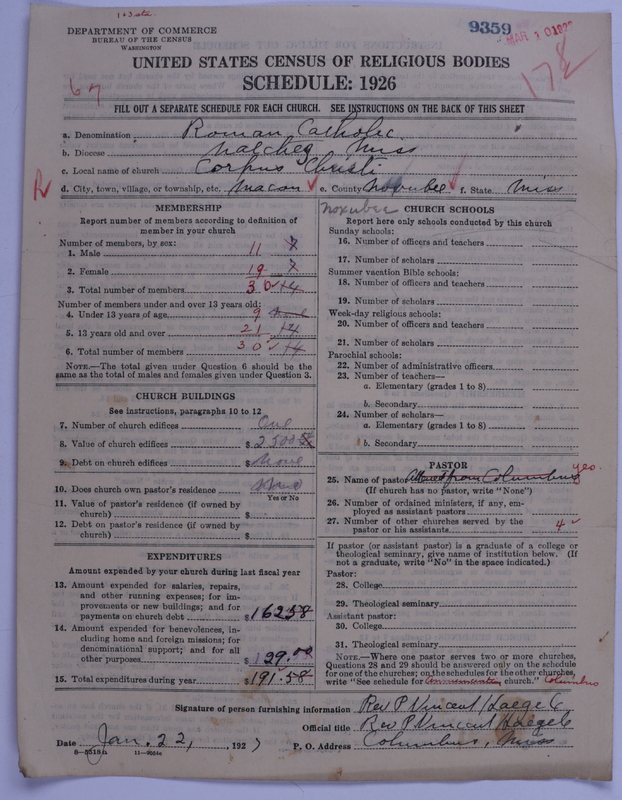 103ate.
DEPARTMENT OF COMMERCE
BUREAU OF THE CENSUS
WASHINGTON
9359
MAR 10 192
UNITED STATES CENSUS OF RELIGIOUS BODIES
SCHEDULE: 1926
178
67
FILL OUT A SEPARATE SCHEDULE FOR EACH CHURCH. SEE INSTRUCTIONS ON THE BACK OF THIS SHEET
a. Denomination Roman Catholic.
b. Diocese Natchez Miss
c. Local name of church Corpus Christi
R d. City, town, village, or township, etc. Macon ✓ e. County Noxubee ✓ f. State Miss
Noxubee
MEMBERSHIP
Report number of members according to definition of
member in your church
Number of members, by sex:
1. Male 11 7
2. Female 19 7
3. Total number of members 30 ✓ 14
Number of members under and over 13 years old:
4. Under 13 years of age 9 None
5. 13 years old and over 21 14
6. Total number of members 30 ✓ 14
NOTE.—The total given under Question 6 should be the
same as the total of males and females given under Question 3.
CHURCH BUILDINGS
See instructions, paragraphs 10 to 12
7. Number of church edifices One
8. Value of church edifices $ 2500
9. Debt on church edifices $ None
10. Does church own pastor's residence
Yes or No
11. Value of pastor's residence (if owned by
church) $
12. Debt on pastor's residence (if owned by
church) $
EXPENDITURES
Amount expended by your church during last fiscal year
13. Amount expended for salaries, repairs,
and other running expenses; for im-
provements or new buildings; and for
payments on church debt $ 162.58
14. Amount expended for benevolences, in-
cluding home and foreign missions; for
denominational support; and for all
other purposes $ 29.00
15. Total expenditures during year $ 191.58
CHURCH SCHOOLS
Report here only schools conducted by this church
Sunday schools:
16. Number of officers and teachers
17. Number of scholars
Summer vacation Bible schools:
18. Number of officers and teachers
19. Number of scholars
Week-day religious schools:
20. Number of officers and teachers
21. Number of scholars
Parochial schools:
22. Number of administrative officers
23. Number of teachers—
a. Elementary (grades 1 to 8)
b. Secondary
24. Number of scholars—
a. Elementary (grades 1 to 8)
b. Secondary
PASTOR
yes.
25. Name of pastor Attend from Columbus
(If church has no pastor, write "None")
26. Number of ordained ministers, if any, em-
ployed as assistant pastors
27. Number of other churches served by the
pastor or his assistants 4 ✓
If pastor (or assistant pastor) is a graduate of a college or
theological seminary, give name of institution below. (If
not a graduate, write "No" in the space indicated.)
Pastor:
28. College
29. Theological seminary
Assistant pastor:
30. College
31. Theological seminary
NOTE.—Where one pastor serves two or more churches,
Questions 28 and 29 should be answered only on the schedule
for one of the churches; on the schedules for the other churches,
write "See schedule for church." Columbus
Signature of person furnishing information Rev P Vincent Haegele
Official title Rev P Vincent Haegele
Date Jan. 22, , 1927 P. O. Address Columbus, Miss
8—5518a 11—9054c